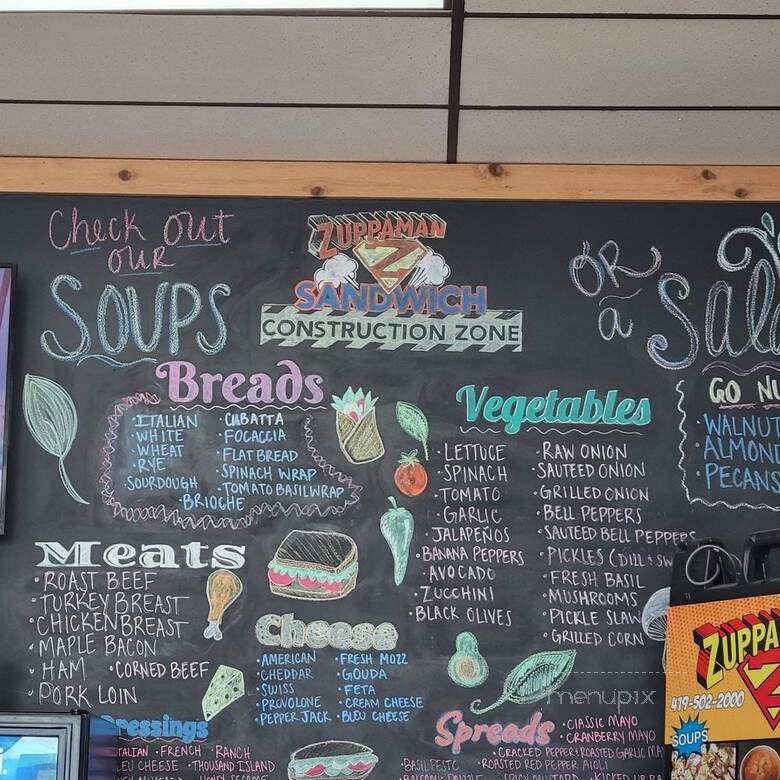 Check out
our
SOUPS
ZUPPAMAN
Z
SANDWICH
CONSTRUCTION ZONE
OR
a
Breads
• ITALIAN
• WHITE
• WHEAT
• RYE
• SOURDOUGH
• CIABATTA
• FOCACCIA
• FLAT BREAD
• SPINACH WRAP
• TOMATO BASIL WRAP
• BRIOCHE
Meats
• ROAST BEEF
• TURKEY BREAST
• CHICKEN BREAST
• MAPLE BACON
• HAM • CORNED BEEF
• PORK LOIN
Cheese
• AMERICAN
• CHEDDAR
• SWISS
• PROVOLONE
• PEPPER JACK
• FRESH MOZZ
• GOUDA
• FETA
• CREAM CHEESE
• BLEU CHEESE
Vegetables
• LETTUCE
• SPINACH
• TOMATO
• GARLIC
• JALAPEÑOS
• BANANA PEPPERS
• AVOCADO
• ZUCCHINI
• BLACK OLIVES
• RAW ONION
• SAUTEED ONION
• GRILLED ONION
• BELL PEPPERS
• SAUTEED BELL PEPPERS
• PICKLES (DILL + SW
• FRESH BASIL
• MUSHROOMS
• PICKLE SLAW
• GRILLED CORN
GO
• WALNUT
• ALMOND
• PECANS
Dressings
ITALIAN • FRENCH • RANCH
BLEU CHEESE • THOUSAND ISLAND
Spreads
• CLASSIC MAYO
• CRANBERRY MAYO
CRACKED PEPPER + ROASTED GARLIC MA
• BASIL PESTO • ROASTED RED PEPPER AIOLI
ZUPPA
419-502-2000
SOUPS
menupix